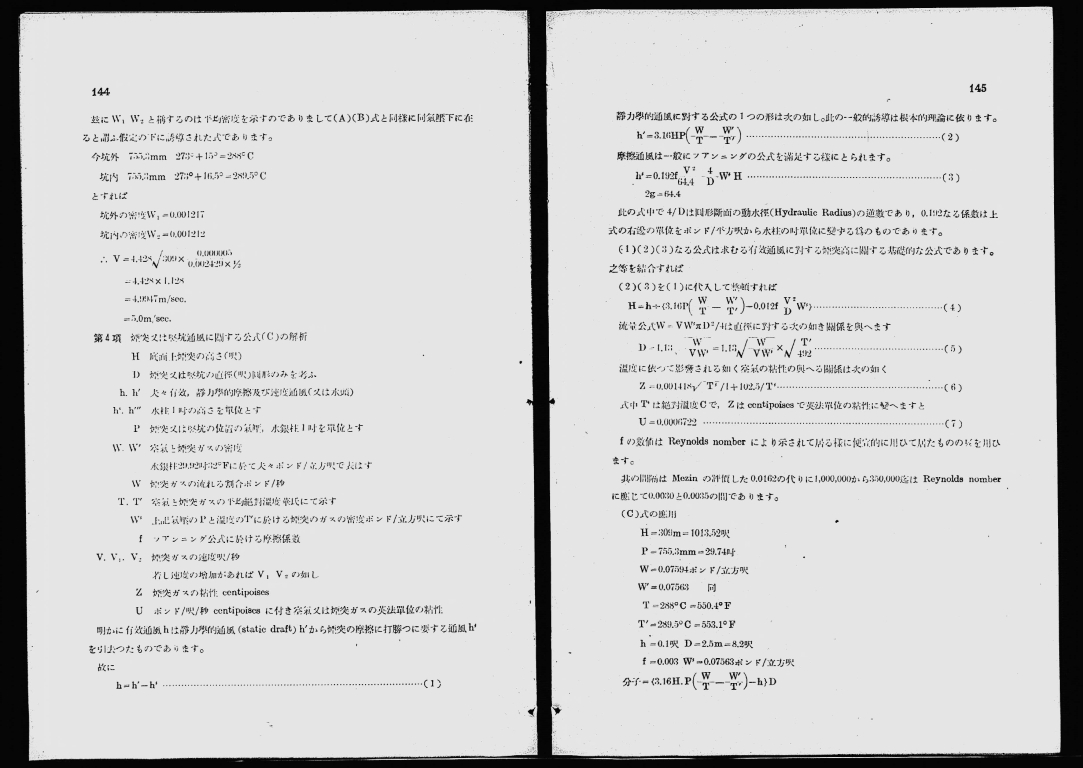 144
玆に W₁ W₂ と稱するのは平均密度を示すのでありまして(A)(B)式と同樣に同氣壓下に在
ると謂ふ假定の下に誘導された式であります。
今坑外 755.3mm 273°+15°=288°C
坑内 755.3mm 273°+16.5°=289.5°C
とすれば
坑外の密度W₁=0.001217
坑内の密度W₂=0.001212
∴ V=4.428√309× 0.000005 / 0.002429×½
=4.428×1.128
=4.9947m/sec.
=5.0m/sec.
第4項 煙突又は竪坑通風に關する公式(C)の解析
H 底面上煙突の高さ(呎)
D 煙突又は竪坑の直徑(呎)圓形のみを考ふ
h. h′ 夫々有效，靜力學的摩擦及び速度通風(又は水頭)
h″. h‴ 水柱1吋の高さを單位とす
P 煙突又は竪坑の位置の氣壓，水銀柱1吋を單位とす
W. W′ 空氣と煙突ガスの密度
水銀柱29.92吋32°Fに於て夫々ポンド/立方呎で表はす
W 煙突ガスの流れる割合ポンド/秒
T. T′ 空氣と煙突ガスの平均絕對溫度華氏にて示す
W″ 上記氣壓のPと溫度のT′に於ける煙突のガスの密度ポンド/立方呎にて示す
f ファンニング公式に於ける摩擦係數
V. V₁. V₂ 煙突ガスの速度呎/秒
若し速度の增加があれば V₁ V₂ の如し
Z 煙突ガスの粘性 centipoises
U ポンド/呎/秒 centipoises に付き空氣又は煙突ガスの英法單位の粘性
明かに有效通風hは靜力學的通風 (static draft) h′から煙突の摩擦に打勝つに要する通風h″
を引去つたものであります。
故に
h=h′−h″ ……………(1)
145
靜力學的通風に對する公式の1つの形は次の如し。此の一般的誘導は根本的理論に依ります。
h′=3.16HP(W/T − W′/T′) ……………(2)
摩擦通風は一般にファンニングの公式を滿足する樣にとられます。
h″=0.192f V²/64.4 4/D W″ H ……………(3)
2g=64.4
此の式中で 4/Dは圓形斷面の動水徑(Hydraulic Radius)の逆數であり，0.192なる係數は上
式の右邊の單位をポンド/平方呎から水柱の吋單位に變する爲のものであります。
(1)(2)(3)なる公式は求むる有效通風に對する煙突高に關する基礎的な公式であります。
之等を結合すれば
(2)(3)を(1)に代入して整頓すれば
H=h÷{3.16P(W/T − W′/T′)−0.012f V²/D W″} ……………(4)
流量公式W=VW″πD²/4は直徑に對する次の如き關係を與へます
D=1.13√W/VW″ =1.13√W/VW′ × √T′/492 ……………(5)
溫度に依つて影響される如く空氣の粘性の與へる關係は次の如く
Z=0.001418√T″/1+102.5/T″ ……………(6)
式中 T″ は絕對溫度Cで，Zは centipoises で英法單位の粘性に變へますと
U=0.0006722 ……………(7)
f の數値は Reynolds nomber により示されて居る樣に便宜的に用ひて居たものの
ます。
其の關係は Mezin の評價した 0.0162の代りに1,000,000から350,000迄は Reynolds nomber
に應じて0.0030と0.0035の間であります。
(C)式の應用
H=309m=1013.52呎
P=755.3mm=29.74吋
W=0.07594ポンド/立方呎
W′=0.07563 同
T=288°C=550.4°F
T′=289.5°C=553.1°F
h=0.1呎 D=2.5m=8.2呎
f=0.003 W″=0.07563ポンド/立方呎
分子={3.16H.P(W/T − W′/T′)−h}D